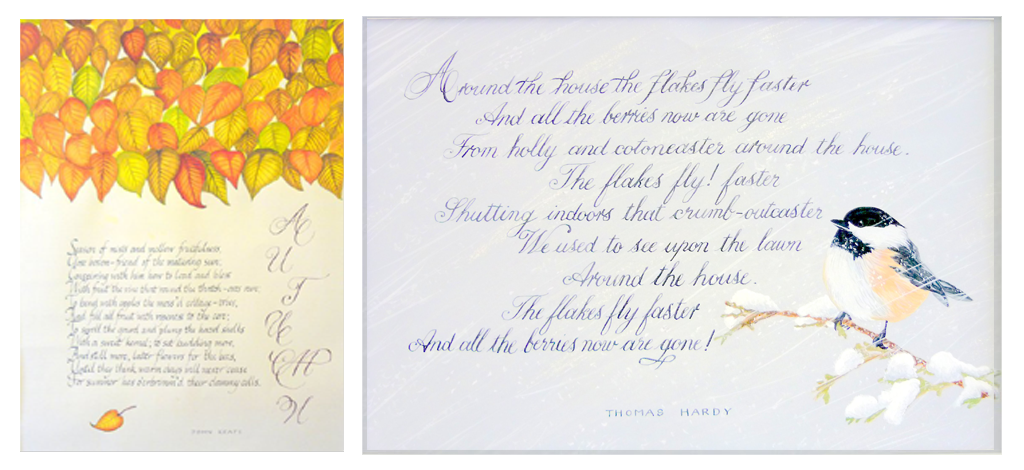 Season of mists and mellow fruitfulness,
Close bosom-friend of the maturing sun;
Conspiring with him how to load and bless
With fruit the vines that round the thatch-eves run;
To bend with apples the moss'd cottage-trees,
And fill all fruit with ripeness to the core;
To swell the gourd and plump the hazel shells
With a sweet kernel; to set budding more,
And still more, later flowers for the bees,
Until they think warm days will never cease
For summer has o'erbrimm'd their clammy cells.
AUTUMN
JOHN KEATS
Around the house the flakes fly faster
And all the berries now are gone
From holly and cotoneaster around the house.
The flakes fly! faster
Shutting indoors that crumb-outcaster
We used to see upon the lawn
Around the house.
The flakes fly faster
And all the berries now are gone!
THOMAS HARDY